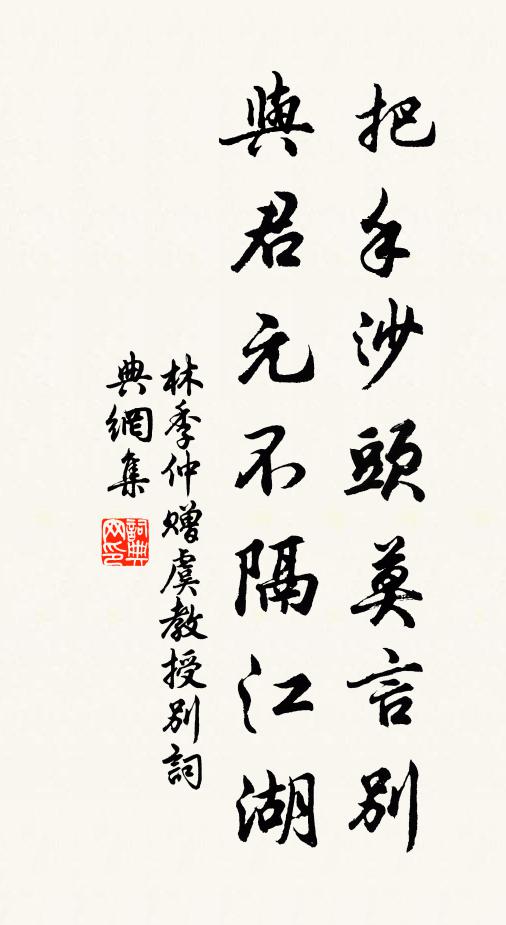 把手沙頭莫言別
與君元不隔江湖
林季仲贈虞教授別詞
典網集
詞典網印